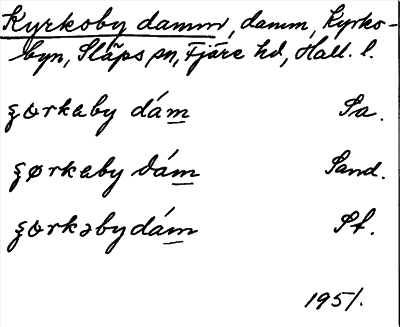 Kyrkoby damm, damm, Kyrko-
byn, Släps sn, Fjäre hd, Hall. l.
ȿɵrkaby dám Sa.
ȿørkaby dám Sand.
ȿɵrkəbydám St.
1951.